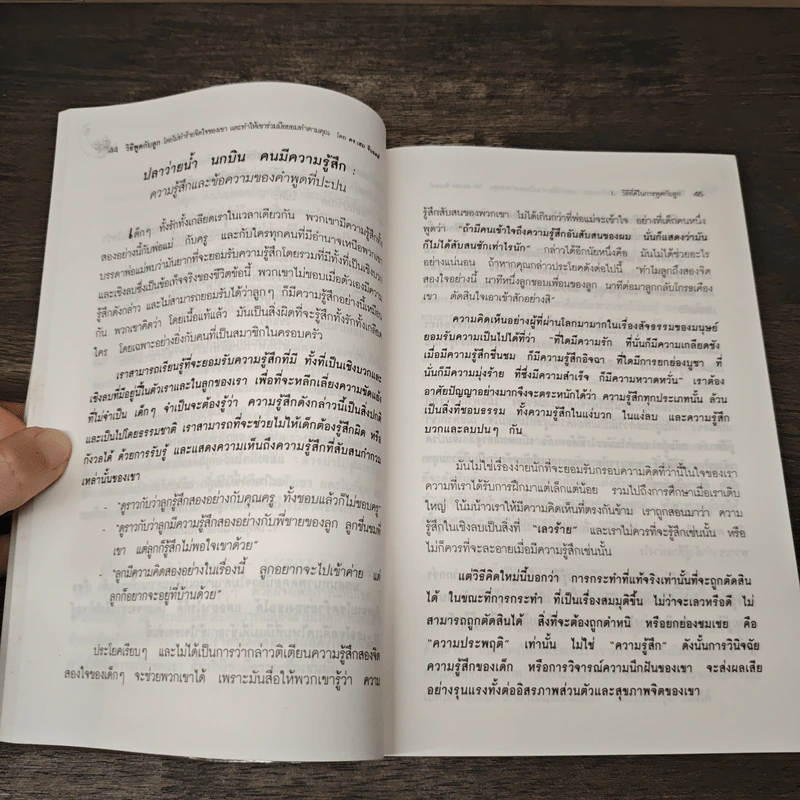 ๔๔ วิธีพูดกับลูก โดยไม่ทำร้ายจิตใจของเขา และทำให้เขาร่วมมือยอมทำตามคุณ โดย ดร.เฮม
ปลาว่ายน้ำ นกบิน คนมีความรู้สึก :
ความรู้สึกและข้อความของคำพูดที่ปะปน
เด็กๆ ทั้งรักทั้งเกลียดเราในเวลาเดียวกัน พวกเขามีความรู้สึกทั้ง
สองอย่างนี้กับพ่อแม่ กับครู และกับใครทุกคนที่มีอำนาจเหนือพวกเขา
บรรดาพ่อแม่พบว่ามันยากที่จะยอมรับความรู้สึกโดยรวมที่มีทั้งที่เป็นเชิงบวก
และเชิงลบซึ่งเป็นข้อเท็จจริงของชีวิตข้อนี้ พวกเขาไม่ชอบเมื่อตัวเองมีความ
รู้สึกดังกล่าว และไม่สามารถยอมรับได้ว่าลูกๆ ก็มีความรู้สึกอย่างนี้เหมือน
กัน พวกเขาคิดว่า โดยเนื้อแท้แล้ว มันเป็นสิ่งผิดที่จะรู้สึกทั้งรักทั้งเกลียด
ใคร โดยเฉพาะอย่างยิ่งกับคนที่เป็นสมาชิกในครอบครัว
เราสามารถเรียนรู้ที่จะยอมรับความรู้สึกที่มี ทั้งที่เป็นเชิงบวกและ
เชิงลบที่มีอยู่นี้ในตัวเราและในลูกของเรา เพื่อที่จะหลีกเลี่ยงความขัดแย้ง
ที่ไม่จำเป็น เด็กๆ จำเป็นจะต้องรู้ว่า ความรู้สึกดังกล่าวนี้เป็นสิ่งปกติ
และเป็นไปโดยธรรมชาติ เราสามารถที่จะช่วยไม่ให้เด็กต้องรู้สึกผิด หรือ
กังวลได้ ด้วยการรับรู้ และแสดงความเห็นถึงความรู้สึกที่สับสนกำกวม
เหล่านั้นของเขา
- “ดูราวกับว่าลูกรู้สึกสองอย่างกับคุณครู ทั้งชอบแล้วก็ไม่ชอบครู”
- “ดูราวกับว่าลูกมีความรู้สึกสองอย่างกับพี่ชายของลูก ลูกชื่นชมพี่
เขา แต่ลูกก็รู้สึกไม่พอใจเขาด้วย”
- “ลูกมีความคิดสองอย่างในเรื่องนี้ ลูกอยากจะไปเข้าค่าย แต่
ลูกก็อยากจะอยู่ที่บ้านด้วย”
ประโยคเรียบๆ และไม่ได้เป็นการว่ากล่าวติเตียนความรู้สึกสองจิต
สองใจของเด็กๆ จะช่วยพวกเขาได้ เพราะมันสื่อให้พวกเขารู้ว่า ความ
1. วิธีที่ดีในการพูดกับลูก ๔๕
รู้สึกสับสนของพวกเขา ไม่ได้เกินกว่าที่พ่อแม่จะเข้าใจ อย่างที่เด็กคนหนึ่ง
พูดว่า “ถ้ามีคนเข้าใจถึงความรู้สึกอันสับสนของผม นั่นก็แสดงว่ามัน
ก็ไม่ได้สับสนซักเท่าไรนัก” กล่าวได้อีกนัยหนึ่งคือ มันไม่ได้ช่วยอะไร
อย่างแน่นอน ถ้าหากคุณกล่าวประโยคดังต่อไปนี้ “ทำไมลูกถึงสองจิต
สองใจอย่างนี้ นาทีหนึ่งลูกชอบเพื่อนของลูก นาทีต่อมาลูกกลับโกรธเคือง
เขา ตัดสินใจเอาเข้าสักอย่างสิ”
ความคิดเห็นอย่างผู้ที่ผ่านโลกมามากในเรื่องสัจธรรมของมนุษย์
ยอมรับความเป็นไปได้ที่ว่า “ที่ใดมีความรัก ที่นั่นก็มีความเกลียดชัง
เมื่อมีความรู้สึกชื่นชม ก็มีความรู้สึกอิจฉา ที่ใดมีการยกย่องบูชา ที่
นั่นก็มีความมุ่งร้าย ที่ซึ่งมีความสำเร็จ ก็มีความหวาดหวั่น” เราต้อง
อาศัยปัญญาอย่างมากจึงจะตระหนักได้ว่า ความรู้สึกทุกประเภทนั้น ล้วน
เป็นสิ่งที่ชอบธรรม ทั้งความรู้สึกในแง่บวก ในแง่ลบ และความรู้สึก
บวกและลบปนๆ กัน
มันไม่ใช่เรื่องง่ายนักที่จะยอมรับกรอบความคิดที่ว่านี้ในใจของเรา
ความที่เราได้รับการฝึกมาแต่เล็กแต่น้อย รวมไปถึงการศึกษาเมื่อเราเติบ
ใหญ่ โน้มน้าวเราให้มีความคิดเห็นที่ตรงกันข้าม เราถูกสอนมาว่า ความ
รู้สึกในเชิงลบเป็นสิ่งที่ “เลวร้าย” และเราไม่ควรที่จะรู้สึกเช่นนั้น หรือ
ไม่ก็ควรที่จะละอายเมื่อมีความรู้สึกเช่นนั้น
แต่วิธีคิดใหม่นี้บอกว่า การกระทำที่แท้จริงเท่านั้นที่จะถูกตัดสิน
ได้ ในขณะที่การกระทำ ที่เป็นเรื่องสมมุติขึ้น ไม่ว่าจะเลวหรือดี ไม่
สามารถถูกตัดสินได้ สิ่งที่จะต้องถูกตำหนิ หรือยกย่องชมเชย คือ
“ความประพฤติ” เท่านั้น ไม่ใช่ “ความรู้สึก” ดังนั้นการวินิจฉัย
ความรู้สึกของเด็ก หรือการวิจารณ์ความนึกฝันของเขา จะส่งผลเสีย
อย่างรุนแรงทั้งต่ออิสรภาพส่วนตัวและสุขภาพจิตของเขา